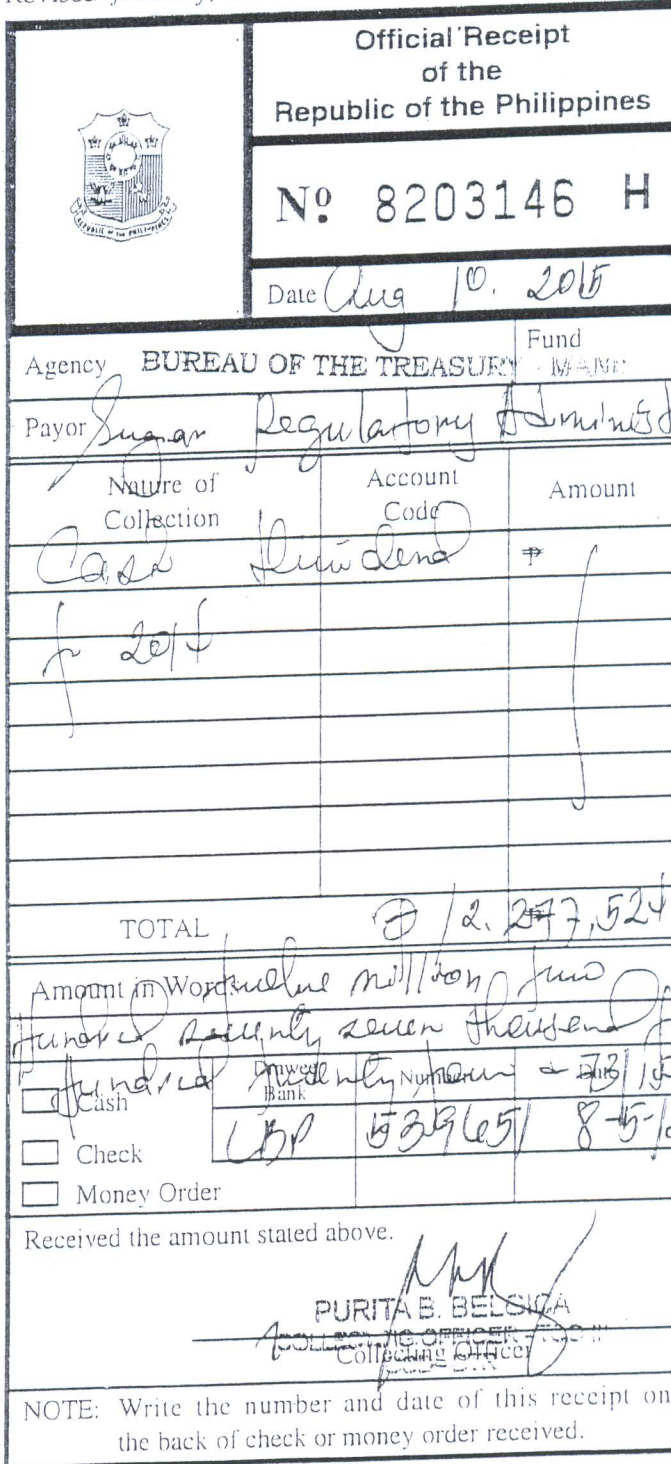 Official Receipt
of the
Republic of the Philippines
REPUBLIC OF THE PHILIPPINES
Nº 8203146 H
Date Aug 10. 2015
Agency BUREAU OF THE TREASURY
Fund
Payor Sugar Regulatory Administ
Nature of Collection Account Code Amount
Cash Dividend ₱
2014
TOTAL ₱ 12.277,524
Amount in Words Twelve million two
Hundred seventy seven thousand
Hundred twenty four & 73/
Cash Drawee Bank Number Date
LBP 539651 8-5-1
Check
Money Order
Received the amount stated above.
PURITA B. BELGICA
COLLECTING OFFICER
Collecting Officer
NOTE: Write the number and date of this receipt on
the back of check or money order received.